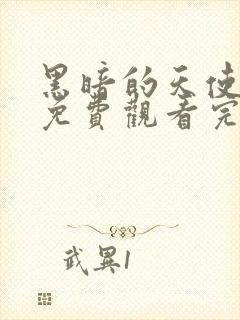 黑暗的天使
免費觀看完
武異1